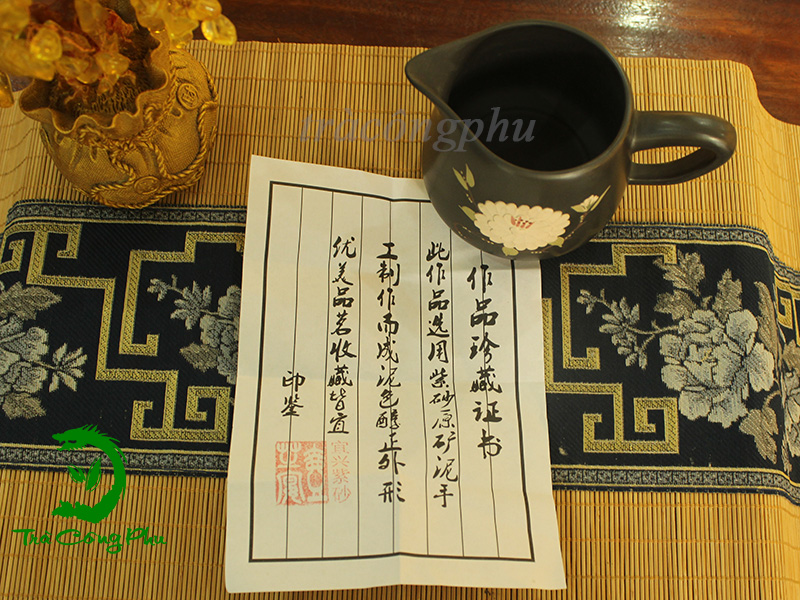 作品珍藏证书
此作品选用紫砂原矿泥手
工制作而成泥色醇正外形
优美品茗收藏皆宜
印鉴
宜兴紫砂
tracôngphu
Trà Công Phu